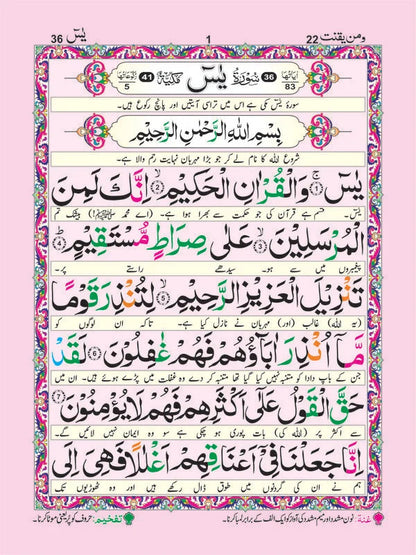 ومن يقنت 22 1 يٰسٓ 36
اٰیاتہا 83 36 سُوْرَةُ يٰسٓ مَكِّيَّةٌ 41 رکوعاتہا 5
سورۃ یٰسٓ مکی ہے اس میں تراسی آیتیں اور پانچ رکوع ہیں۔
بِسْمِ اللهِ الرَّحْمٰنِ الرَّحِيْمِ
شروع اللہ کا نام لے کر جو بڑا مہربان نہایت رحم والا ہے۔
يٰسٓ ۝1 وَالْقُرْاٰنِ الْحَكِيْمِ ۝2 اِنَّكَ لَمِنَ
یٰسٓ۔ قسم ہے قرآن کی جو حکمت سے بھرا ہوا ہے۔ (اے محمد ﷺ!) بیشک تم
الْمُرْسَلِيْنَ ۝3 عَلٰى صِرَاطٍ مُّسْتَقِيْمٍ ۝4
پیغمبروں میں سے ہو۔ سیدھے راستے پر۔
تَنْزِيْلَ الْعَزِيْزِ الرَّحِيْمِ ۝5 لِتُنْذِرَ قَوْمًا
(یہ اللہ) غالب (اور) مہربان نے نازل کیا ہے۔ تاکہ ان لوگوں کو
مَّآ اُنْذِرَ اٰبَآؤُهُمْ فَهُمْ غٰفِلُوْنَ ۝6 لَقَدْ
جن کے باپ دادا کو متنبہ نہیں کیا گیا تھا متنبہ کر دے وہ غفلت میں پڑے ہوئے ہیں۔ ان میں
حَقَّ الْقَوْلُ عَلٰٓى اَكْثَرِهِمْ فَهُمْ لَا يُؤْمِنُوْنَ ۝7
سے اکثر پر (اللہ کی) بات پوری ہو چکی ہے سو وہ ایمان نہیں لائیں گے۔
اِنَّا جَعَلْنَا فِيْٓ اَعْنَاقِهِمْ اَغْلٰلًا فَهِيَ اِلَى
ہم نے ان کی گردنوں میں طوق ڈال رکھے ہیں اور وہ ٹھوڑیوں تک
غنہ: نون مشدد اور میم مشدد کی آواز کو ایک الف کے برابر لمبا کرنا۔ تفخیم: حروف کو پُر یعنی موٹا کرنا۔